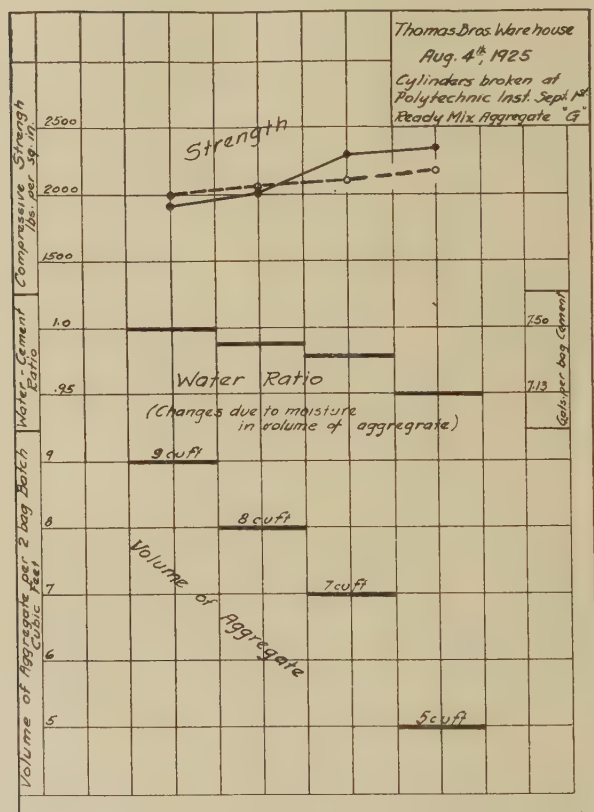 Thomas Bros. Warehouse
Aug. 4th, 1925
Cylinders broken at
Polytechnic Inst. Sept. 1st
Ready Mix Aggregate "G"
Compressive Strengh
lbs. per sq. in.
2500
2000
1500
Strength
Water-Cement
Ratio
1.0
.95
7.50
7.13
Gals. per bag Cement
Water Ratio
(Changes due to moisture
in volume of aggregrate)
Volume of Aggregate per 2 bag Batch
Cubic Feet
9
8
7
6
5
9 cu ft
8 cu ft
7 cu ft
5 cu ft
Volume of Aggregate